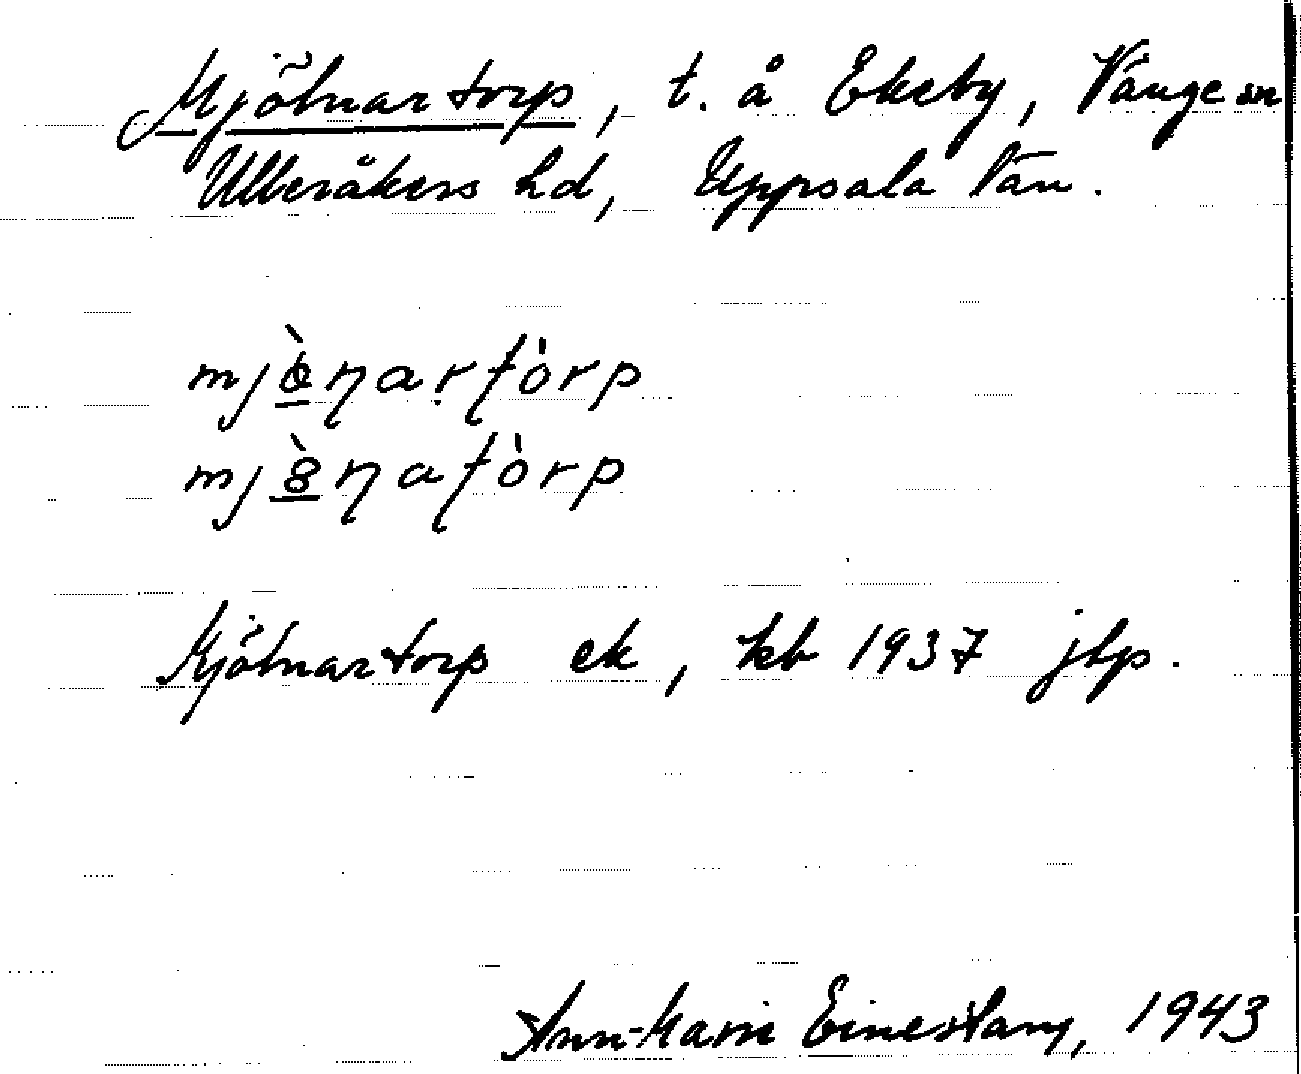 Mjölnartorp, t. å Ekeby, Vänge sn
Ulleråkers hd, Uppsala län.
mjò̱ɳarṭòrp
mjò̱ɳaṭòrp
Mjölnartorp ek, kb 1937 jbp.
Ann-Marie Einestam, 1943